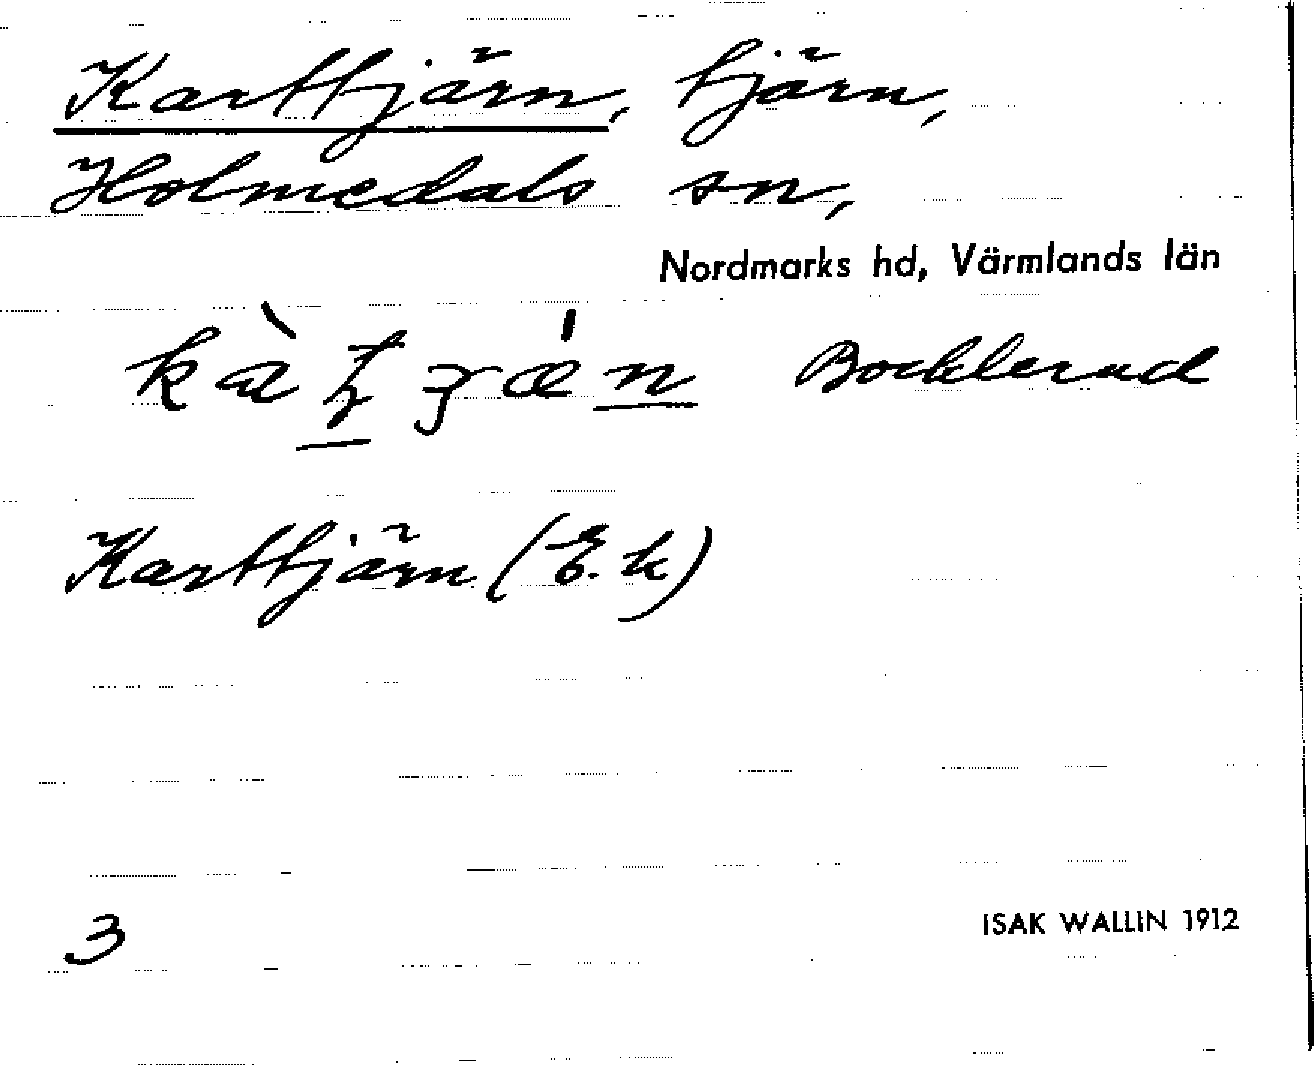 Karttjärn, tjärn,
Holmedals sn,
Nordmarks hd, Värmlands län
Karttjärn (E.k)
3
ISAK WALLIN 1912